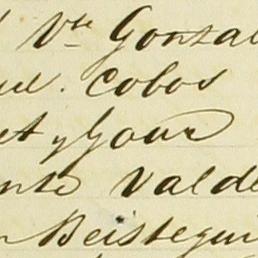 Vte Gonzal
cobos
et y Gour
nte Valde
Beistegui